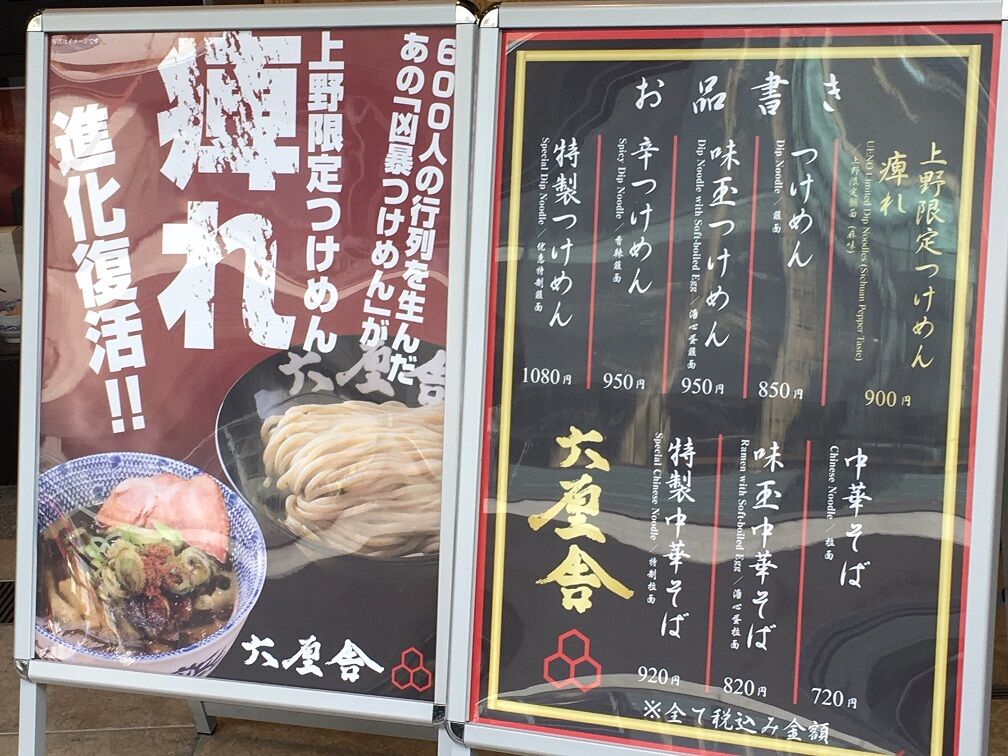 写真はイメージです
600人の行列を生んだ
あの「凶暴つけめん」が
上野限定つけめん
痺れ
進化復活!!
六厘舎
六厘舎
お品書き
上野限定つけめん
痺れ
UENO Limited Dip Noodles (Sichuan Pepper Taste)
/上野限定蘸面(麻味)
900円
つけめん
Dip Noodle/蘸面
850円
味玉つけめん
Dip Noodle with Soft-boiled Egg/溏心蛋蘸面
950円
辛つけめん
Spicy Dip Noodle/香辣蘸面
950円
特製つけめん
Special Dip Noodle/优惠特制蘸面
1080円
中華そば
Chinese Noodle/拉面
720円
味玉中華そば
Ramen with Soft-boiled Egg/溏心蛋拉面
820円
特製中華そば
Special Chinese Noodle/特制拉面
920円
六厘舎
※全て税込み金額